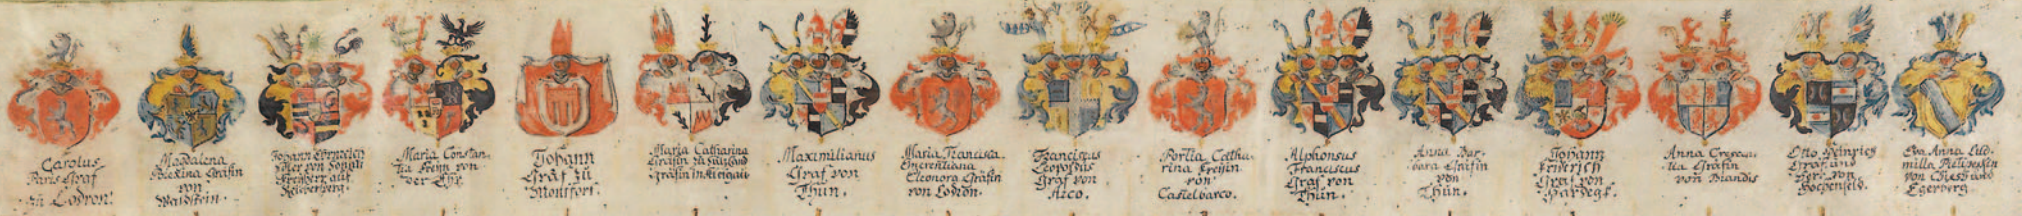 Carolus
Paris Graf
zu Lodron.
Magdalena
Gräfin
von
Waldstein.
Johann
Maria Constan-
tia Freÿin von
der Ehr.
Johann
Graf zu
Montfort.
Maria Catharina
Gräfin zu
Gräfin in
Maximilianus
Graf von
Thun.
Maria Francisca
Emerentiana
Eleonora Gräfin
von Lodron.
Franciscus
Leopoldus
Graf von
Arco.
Portia Catha-
rina Freÿin
von
Castelbarco.
Alphonsus
Franciscus
Graf von
Thun.
Anna Bar-
bara Gräfin
von
Thun.
Johann
Friderich
Graf von
Hardegg.
Anna Crescen-
tia Gräfin
von Brandis
Otto Heinrich
Graf und
Herr von
Hochenfeld.
Eva Anna Lud-
milla
von
Egerberg